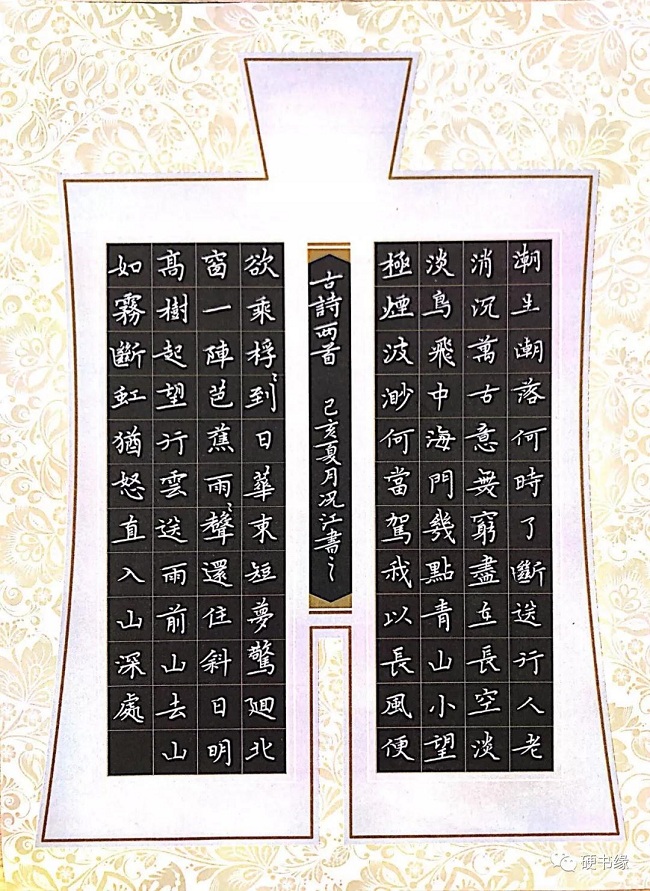 潮生潮落何時了斷送行人老
消沉萬古意無窮盡在長空淡
淡鳥飛中海門幾點青山小望
極煙波渺何當駕我以長風便
古詩两首 己亥夏月況江書之
欲乘桴到日華東短夢驚廻北
窗一陣芭蕉雨聲還住斜日明
高樹起望行雲送雨前山去山
如霧斷虹猶怒直入山深處
硬书缘